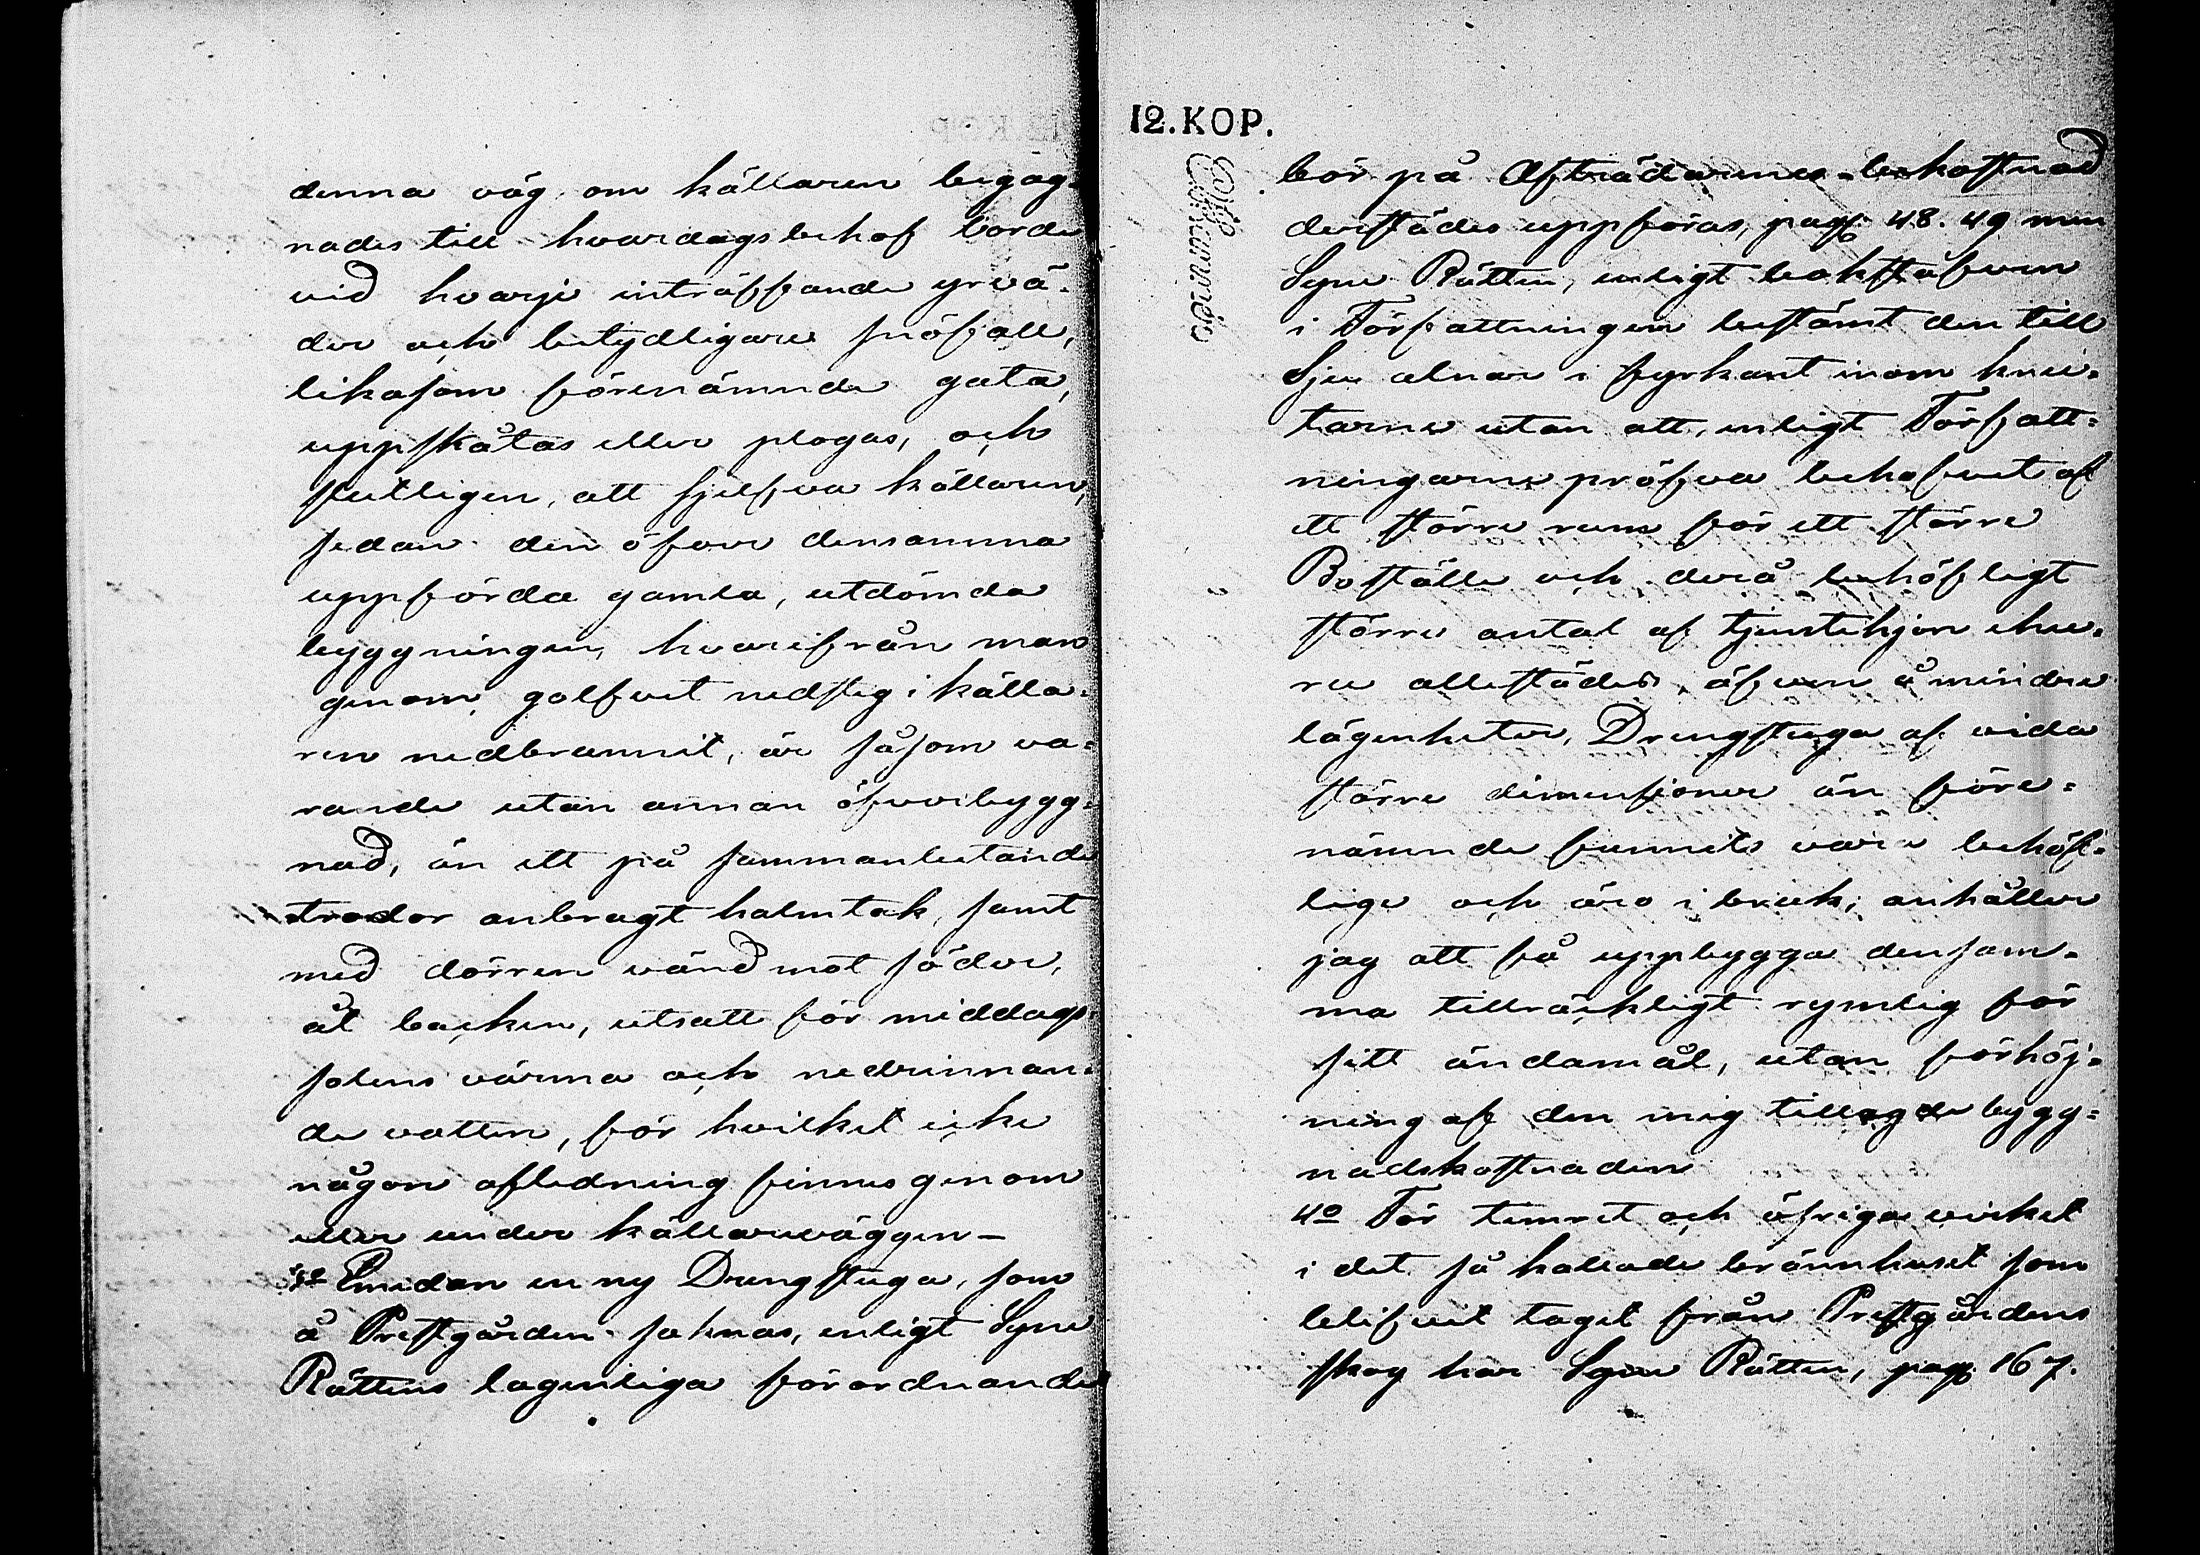 denna väg, om källaren begag-
nades till hvardagsbehof borde
vid hvarje inträffande yrvä-
der och betydligare snöfall,
likasom förenämnde gata,
uppskåtas eller plogas, och
slutligen, att sjelfva källaren,
sedan den öfver densamma
uppförda gamla, utdömda
byggningen, hvarifrån man
genom golfvet nedsteg i källa-
ren nedbrunnit, är såsom va-
rande utan annan öfverbygg-
nad, än ett på sammanbetande
trodor anbragt halmtak, samt
med dörren vänd mot söder,
åt backen, utsatt för middags-
solens värma och nedrinnan-
de vatten, för hvilket icke
någon afledning finnes genom
eller under källareväggen –
3o Emedan en ny Drengstuga, som
å Prestgården saknas, enligt Syne
Rättens lagenliga förordnande
12. KOP.
bör på Afträdarnes bekostnad
derstädes uppföras, pagg. 48. 49 men
Syne Rätten, enligt bokstafven
i Författningen bestämt den till
Sju alnar i fyrkant inom knu-
tarne utan att, enligt Författ-
ningarne pröfva behofvet af
ett större rum för ett större
Boställe och derå behöfligt
större antal af tjenstehjon ehu-
ru allestädes, äfven å mindre
lägenheter, Drengstuga af vida
större dimensioner än före-
nämnde funnits vara behöf-
lige och äro i bruk; anhåller
jag att få uppbygga densam-
ma tillräckligt rymlig för
sitt ändamål, utan förhöj-
ning af den mig tillagde bygg-
nadskostnaden
4o För timret och öfriga virket
i det så kallade brännhuset som
blifvit taget från Prestgårdens
skog har Syne Rätten, pagg. 167.